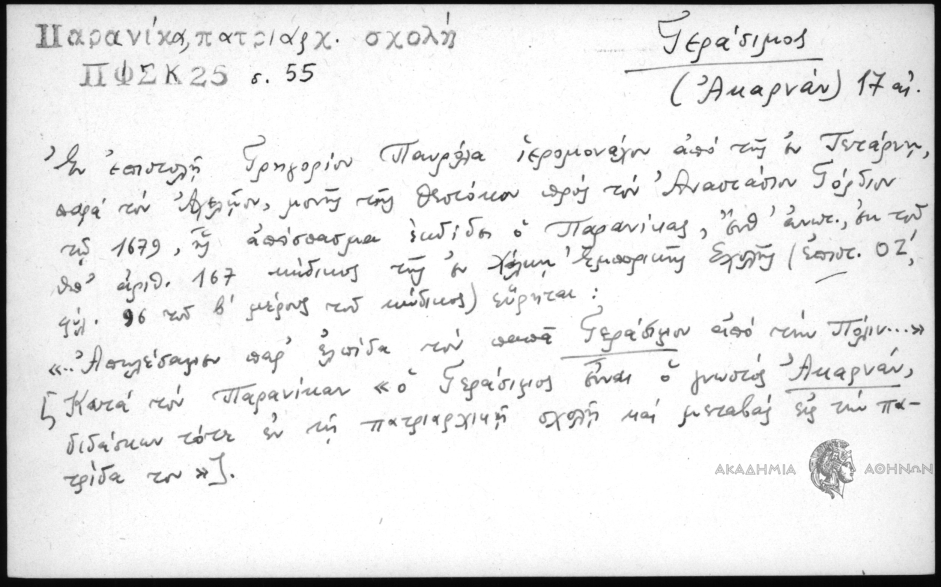 Παρανίκα, πατριαρχ. σχολή
ΠΦΣΚ 25 σ. 55
Γεράσιμος
(Ἀκαρνάν) 17 αἰ.
Ἐν ἐπιστολῇ Γρηγορίου ἱερομονάχου ἀπό τῆς ἐν Τετάρνῃ,
παρά τόν μονῆς τῆς Θεοτόκου πρός τόν Ἀναστάσιον Γόρδιον
τῷ 1679, ἧς ἀπόσπασμα ἐκδίδει ὁ Παρανίκας, ἔνθ' ἀνωτ., ἐκ τοῦ
ὑπ' ἀριθ. 167 κώδικος τῆς ἐν Χάλκῃ Ἐμπορικῆς Σχολῆς (ἐπιστ. ΟΖ',
φύλ. 96 τοῦ β' μέρους τοῦ κώδικος) εὕρηται:
«..Ἀπωλέσαμεν παρ' ἐλπίδα τόν παπᾶ Γεράσιμον ἀπό τήν Πόλιν...»
[Κατά τόν Παρανίκαν «ὁ Γεράσιμος εἶναι ὁ γνωστός Ἀκαρνάν,
διδάσκων τότε ἐν τῇ πατριαρχικῇ σχολῇ καί μεταβάς εἰς τήν πα-
τρίδα του»].
ΑΚΑΔΗΜΙΑ ΑΘΗΝΩΝ